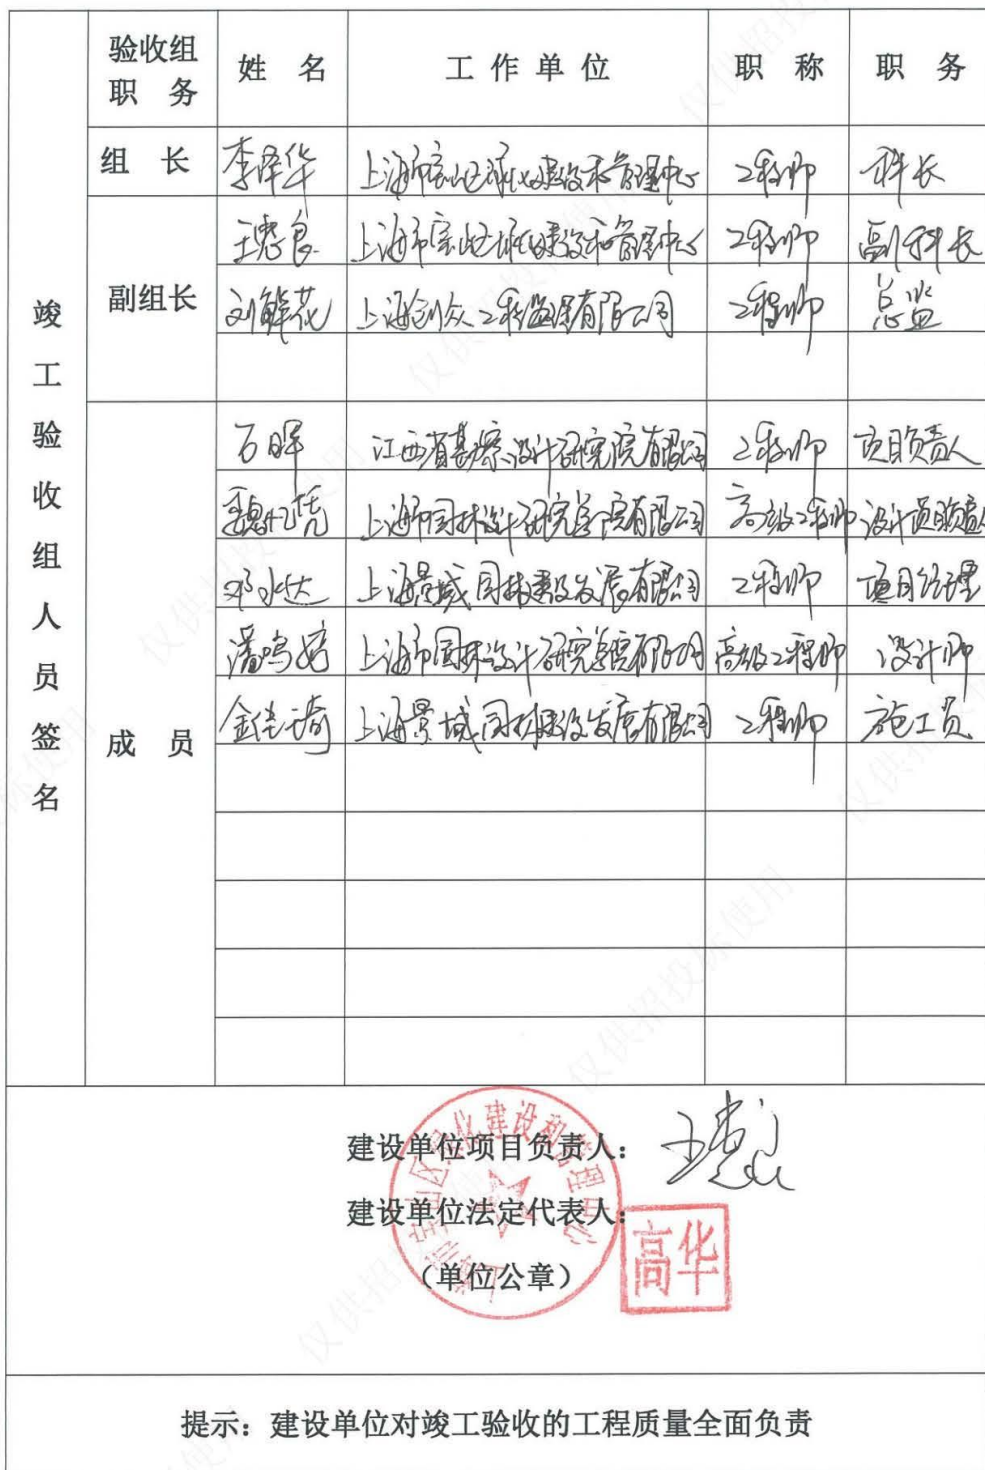 验收组职 务 姓 名 工作单位 职 称 职 务
竣工验收组人员签名
组 长 李泽华 上海市宝山区绿化建设和管理中心 工程师 科长
副组长
王惠良 上海市宝山区绿化建设和管理中心 工程师 副科长
刘鲜花 上海创众工程监理有限公司 工程师 总监
成 员
石晖 江西省勘察设计研究院有限公司 工程师 项目负责人
上海市园林设计研究总院有限公司 高级工程师 设计项目负责人
邓永达 上海景域园林建设发展有限公司 工程师 项目经理
潘鸣婷 上海市园林设计研究总院有限公司 高级工程师 设计师
上海景域园林建设发展有限公司 工程师 施工员
建设单位项目负责人: 王惠良
建设单位法定代表人: 高华
(单位公章)
上海市宝山区绿化建设和管理中心
提示:建设单位对竣工验收的工程质量全面负责
仅供招投标使用